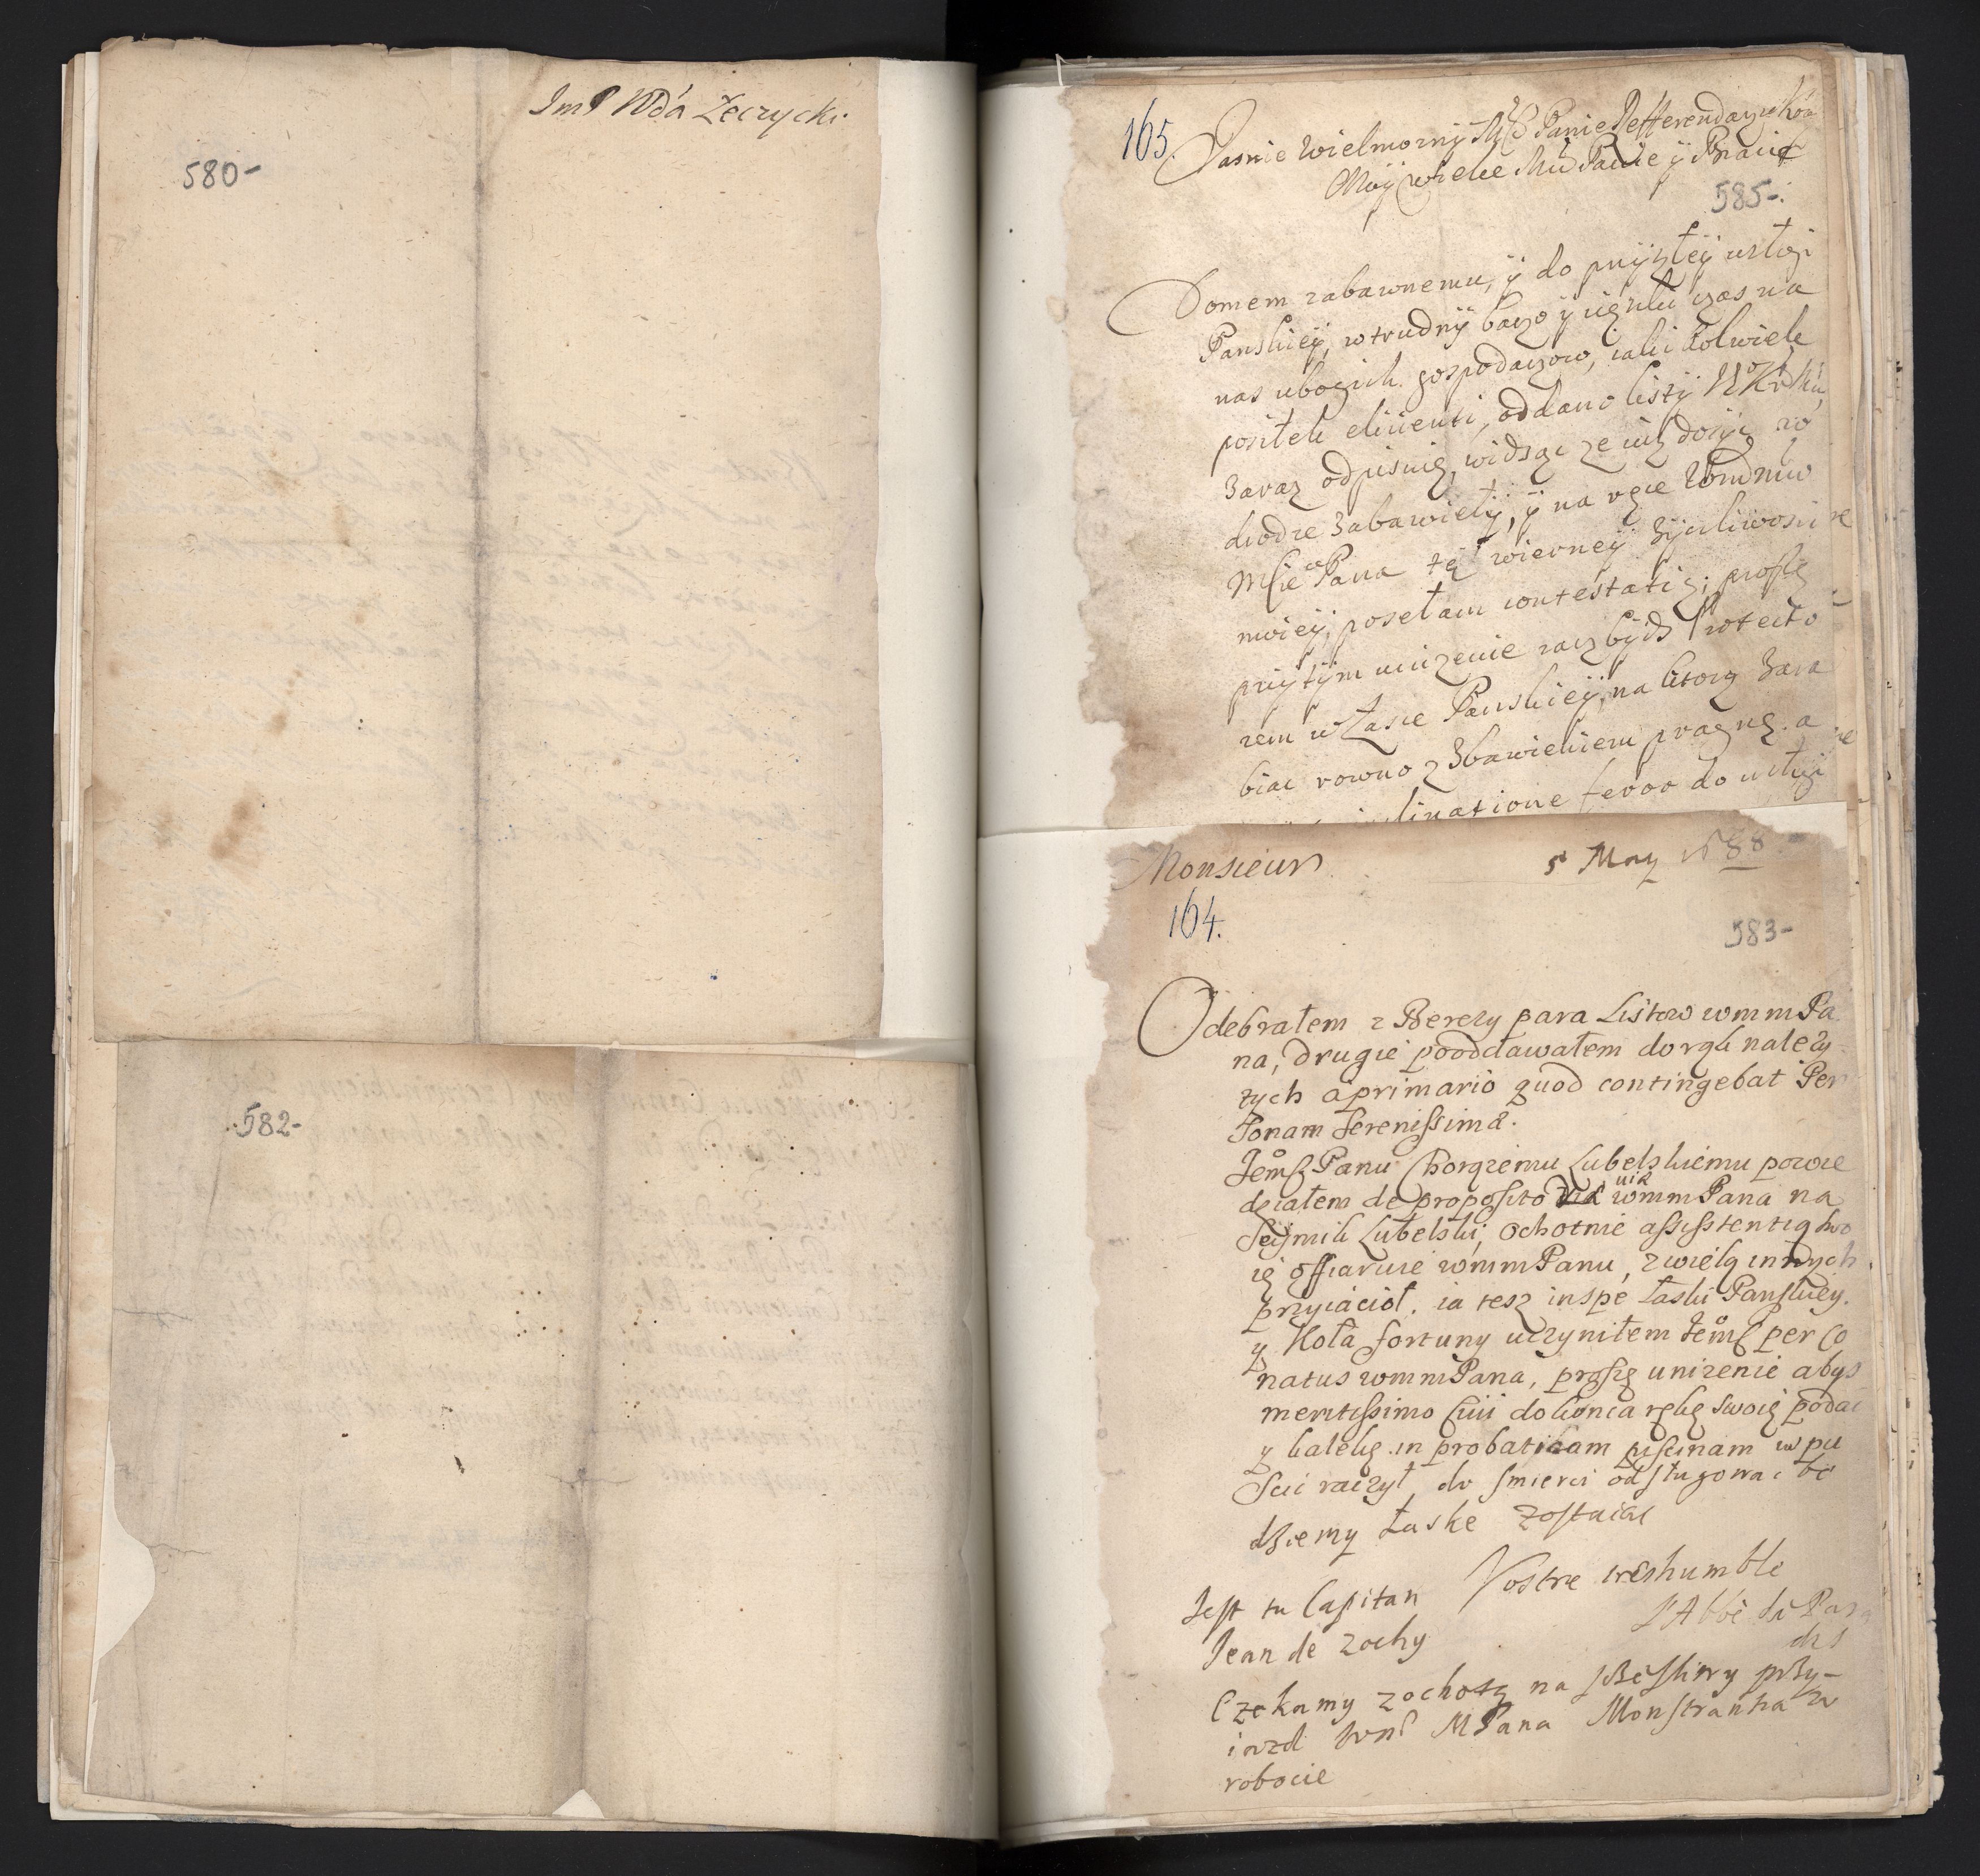 Im P Wda Łeczycki
580-
582-
165.
Jasnie Wielmozny Mſć Panie Refferendarzu Kor
Moÿ wielce Mći Panie ÿ Bracie
585-
Domem zabawnemu, ÿ do przÿszłeÿ usługi
Panskieÿ, w trudnÿ barzo ÿ cięzki czas na
nas ubogich gospodarzow, iaki kolwiek
posiłek clienti, oddano listÿ
Zaraz odpisuię, widząc ze iuz dosÿć
zabawiełÿ, ÿ na ręce
Mſcie Pana tę wierneÿ Zÿczliwosci
moieÿ, posełam contestatię; proszę
przÿtÿm unizenie racz bÿdz Protecto
rem w Łasce Panskieÿ, na ktorą Zara
biac rowno z Zbawieniem pragnę. a
inclinatione fevor do usługi
Monsieur
5 May 1688
164.
583-
Odebrałem z Berezy para Listow wmmPa
na, drugie pooddawałem do rąk należy
tych a primario quod contingebat Per
sonam Serenissimā.
Jemſ Panu Chorązemu Lubelskiemu powie
działem de proposito nia wmmPana na
Seymik Lubelski, ochotnie assistentią swo
ię offiaruie wmmPanu, z wielą innych
przyiacioł. ia tesz in spe łaski Panskiey.
y Koła fortuny uczyniłem Jemſ per co
natus wmmPana, proszę unizenie abys
meritissimo Cui do konca rękę swoię podać
y kalekę in probaticam piscinam wpu
scic raczył, do smierci odsługowac bę
dziemy Łaske zostaiąc
Vostre treshumble
l'Abbé de Para
dis
Jest tu Capitan
Jean de Zochy
Czekamy z ochotą na szczęsliwy przy-
iazd wm MPana Monstrantia w
robocie